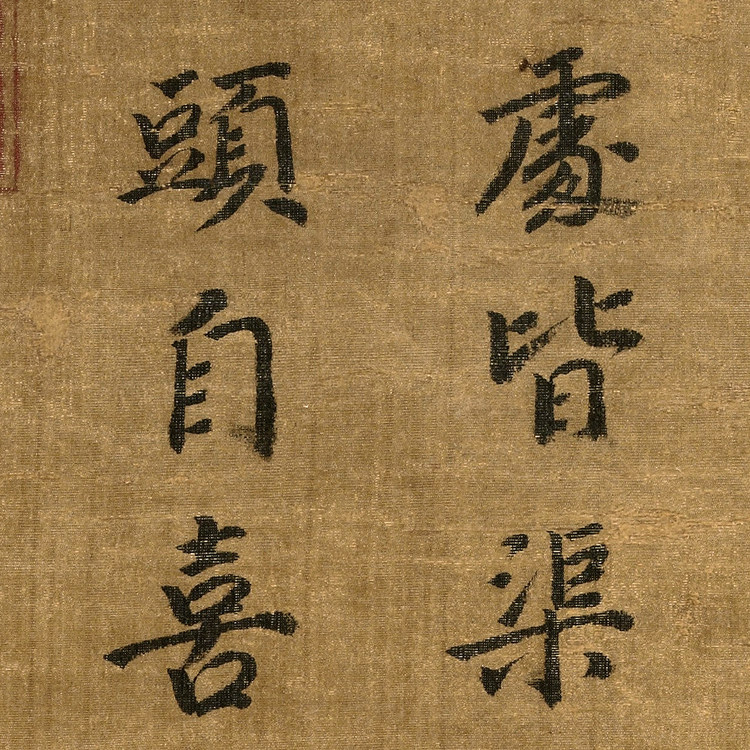 處皆渠
頭自喜